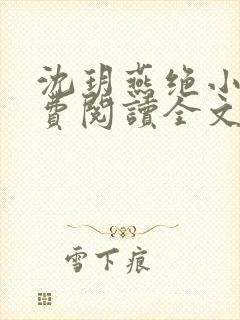 沈玥燕绝小
費閱讀全文
雪下痕